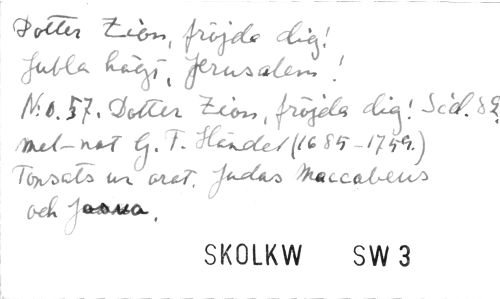 Dotter Zion, fröjda dig!
Jubla högt, Jerusalem!
N:o. 57. Dotter Zion, fröjda dig! Sid. 82.
mel-not G. F. Händel (1685-1759.)
Tonsats ur orat. Judas Maccabeus
och Josua.
SKOLKW SW 3